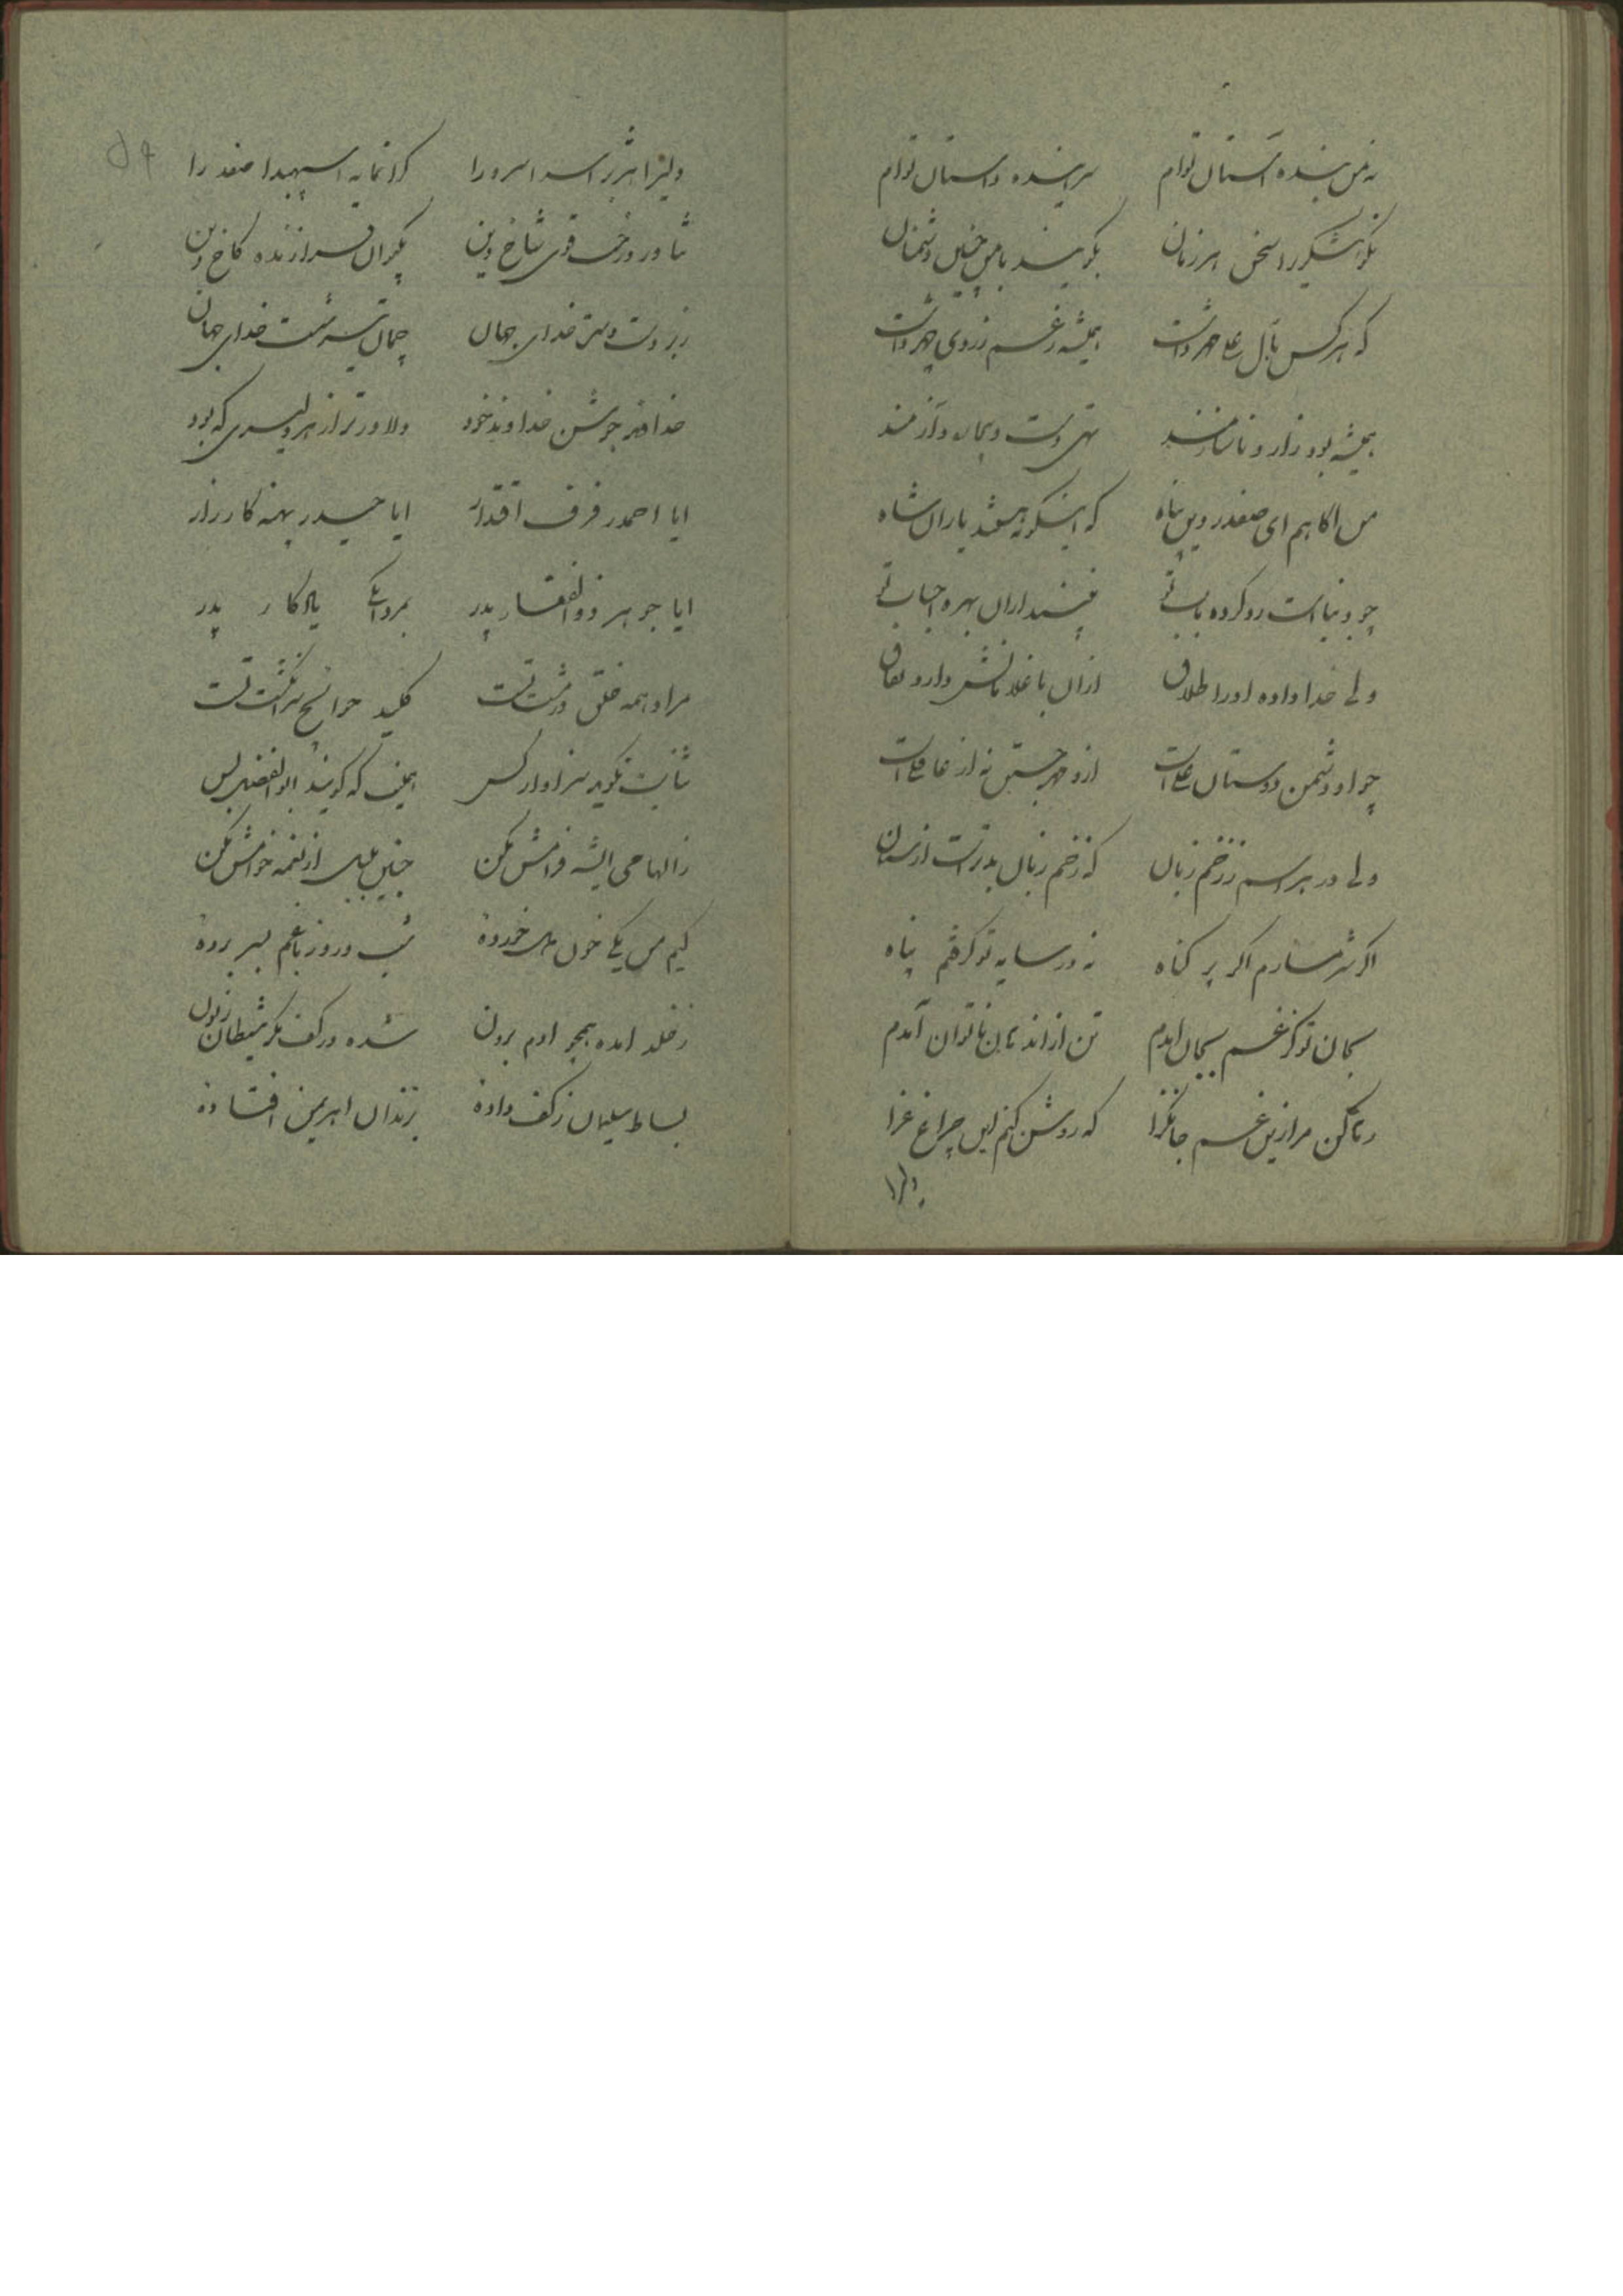 نه من بنده آستان توام سراینده داستان توام
نکوهشگر را سخن هر زمان بگویند با من چنین دشمنان
که هر کس بآل علی مهر داشت همیشه ز غم زردی چهر داشت
همیشه بود زار و ناسازمند تهی دست و بیمار و آزمند
من آگاهم ای صفدر دین پناه که اینگونه باشند یاران شاه
چو دنیاست رو کرده باب تو نباشد از آن بهره احباب تو
ولی خدا داده او را طلاق از آن با غلامانش دارد نفاق
چو او دشمن دوستان علی است ازو مهر جستن نه از عاقلی است
ولی در هراسم ز زخم زبان که زخم زبان بدتر است از سنان
اگر شرمسارم اگر پر گناه نه در سایه تو گرفتم پناه
بجان تو کز غم بجان آمدم تن از اندهان ناتوان آمدم
رها کن مرا زین غم جانگزا که روشن کنم این چراغ عزا
دلیرا
دلیرا هژبرا سرا سرورا گرانمایه اسپهبدا صفدرا
تناور درخت قوی شاخ دین نکو آن فرازنده کاخ دین
زبردست دست خدای جهان جهان سرشت خدای جهان
خدافر جوشن خداوند خود دلاورتر از هر دلیری که بود
ایا احمد رفرف اقتدار ایا حیدر پهنه کارزار
ایا جوهر ذوالفقار پدر بمردانگی یادگار پدر
مراد همه خلق در مشت تست کلید حوائج سر انگشت تست
ثنایت نگوید سزاوار کس همین که گویند ابوالفضل بس
ز الهامی ایشه فرامش مکن چنین بلبل از نغمه خامش مکن
کیم من یکی خون دل خورده شب و روز با غم بسر برده
ز خلد آمده همچو آدم برون شده در کف مکر شیطان زبون
بساط سلیمان ز کف داده بزندان اهریمن افتاده